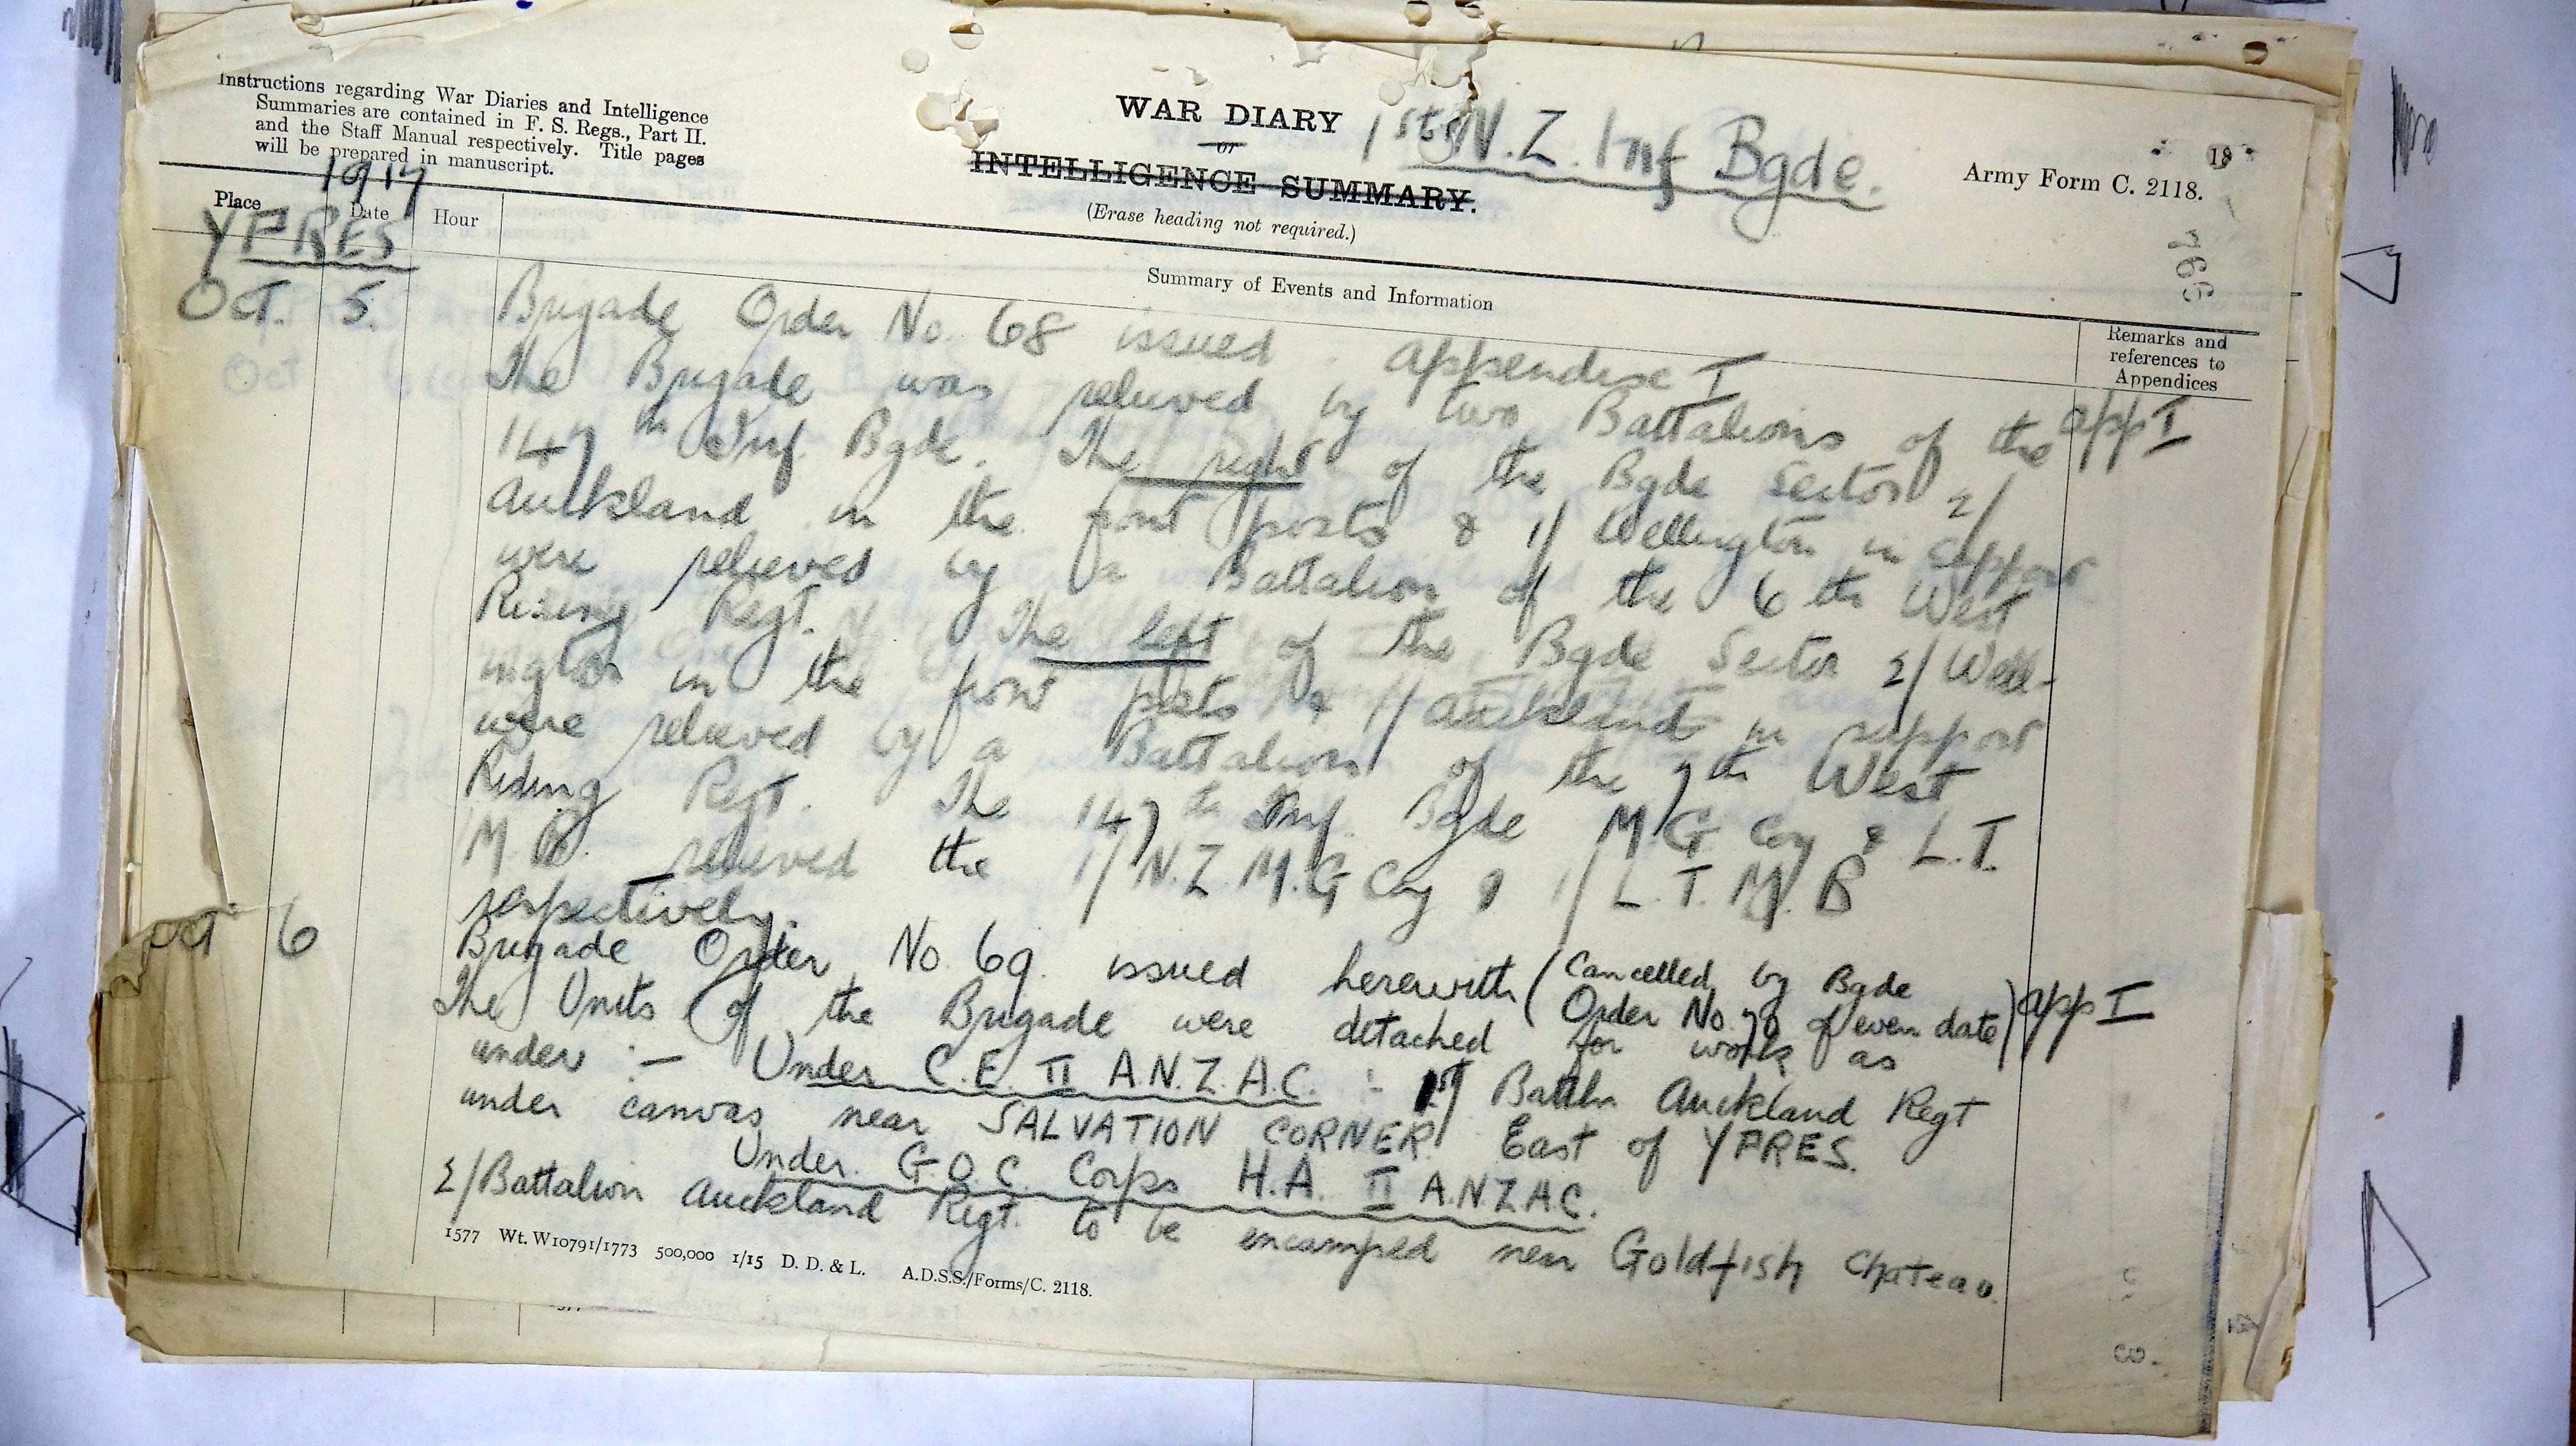 Instructions regarding War Diaries and Intelligence
Summaries are contained in F. S. Regs., Part II.
and the Staff Manual respectively. Title pages
will be prepared in manuscript.
WAR DIARY
or
INTELLIGENCE SUMMARY.
(Erase heading not required.)
1st N.Z. Inf Bgde.
18
Army Form C. 2118.
1917
Place Date Hour
Summary of Events and Information
Remarks and
references to
Appendices
YPRES
Oct. 5. Brigade Order No. 68 issued. appendix I
app I
The Brigade was relieved by two Battalions of the
147th Inf. Bgde. The right of the Bgde Sector 2/
Auckland in the front posts & 1/ Wellington in support
were relieved by a Battalion of the 6th West
Riding Regt. The left of the Bgde Sector 2/ Well-
ington in the front posts & 1/ Auckland in support
were relieved by a Battalion of the 7th West
Riding Regt. The 147th Inf. Bgde M G Coy & L.T.
M B. relieved the 1/ N.Z. M.G Coy & 1/ L.T.M.B
respectively.
Oct 6 Brigade Order No 69. issued herewith (Cancelled by Bgde
Order No. 70 of even date) app I
The Units of the Brigade were detached for work as
under :- Under C.E. II A.N.Z.A.C. :- 1st Battln Auckland Regt
under canvas near SALVATION CORNER East of YPRES.
Under G.O.C. Corps H.A. II A.N.Z.A.C.
2/Battalion Auckland Regt. to be encamped near Goldfish Chateau.
1577 Wt. W10791/1773 500,000 1/15 D. D. & L. A.D.S.S./Forms/C. 2118.